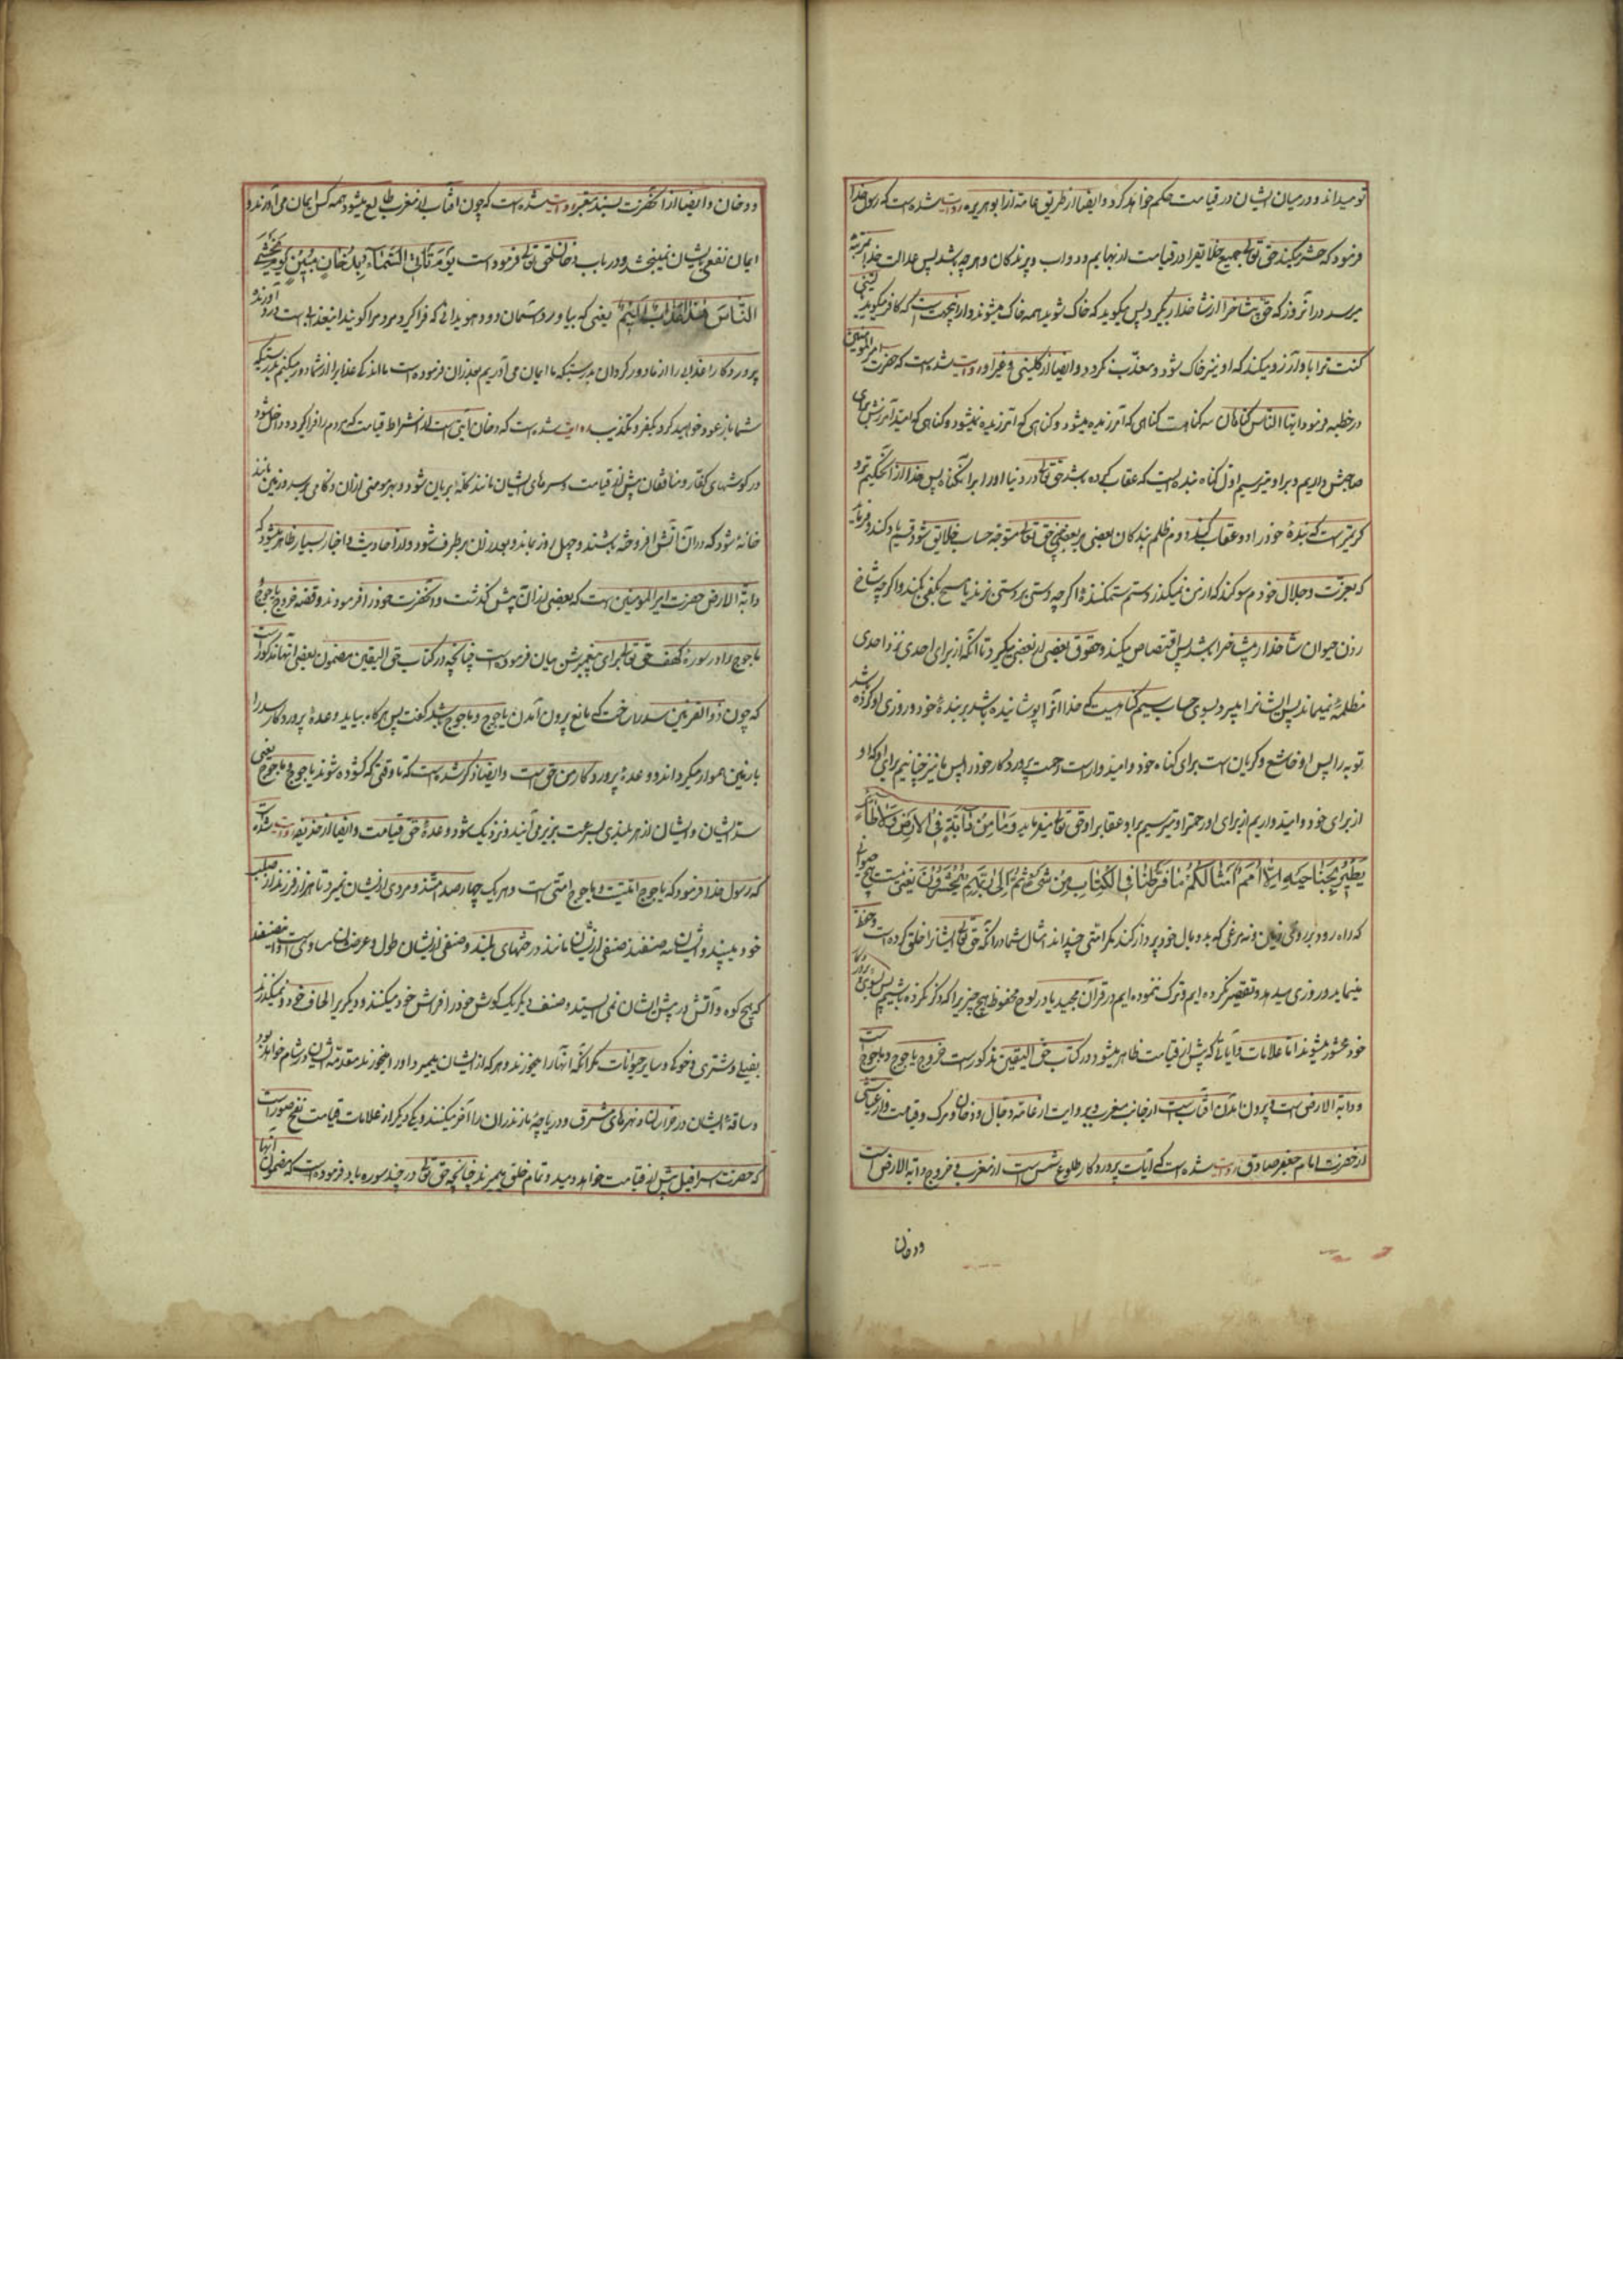 تو میداند و در میان ایشان در قیامت حکم خواهد کرد و ایضا از طریق عامه از ابو هریره روایت شده است که رسول خدا
فرمود که حشر میکند حق تعالی جمیع خلایق را در قیامت از بهایم و دواب و پرندکان و هر چه باشد پس عدالت خدا بمرتبه
میرسد در آنروز که حق بیشاخ را از شاخدار بگیرد پس میکوید که خاک شوید همه خاک میشوند و از اینجهت است که کافر میکوید لیتنی
کنت ترابا و آرزو میکند که او نیز خاک شود و معذب نکردد و ایضا از کلینی و غیر او روایت شده است که حضرت امیر المؤمنین
در خطبه فرمود ایها الناس کناهان سه کناهست کناهی که آمرزیده میشود و کناهی که آمرزیده نمیشود و کناهی که امید آمرزش برای
صاحبش داریم و بر او میترسیم اول کناه بنده ایست که عقاب کرده باشد حق تعالی در دنیا او را برای آنکناه پس خدا از آن حکیم تر و
کریمتر است که بنده خود را دو عقاب کند دوم ظلم بندکان بعضی بر بعضی حق تعالی متوجه حساب خلایق شود قسم یاد کند و فرماید
که بعزت و جلال خودم سوکند که از من نمیکذرد ستم ستمکننده اکرچه دستی بر دستی زند یا مسح بکفی بکند و اکرچه شاخ
زدن حیوان شاخدار بیشاخ را باشد پس اقتصاص میکند و حقوق بعضی از بعضی میکیرد تا آنکه از برای احدی نزد احدی
مظلمه نمیماند پس ایشانرا میبرد بسوی حساب سیم کناهیست که خدا آنرا پوشانیده باشد بر بنده خود و روزی او کرده باشد
توبه را پس او خاشع و کریان است برای کناه خود و امیدوار است رحمت پروردکار خود را پس ما نیز چنانیم برای او که او
از برای خود و امید داریم از برای او رحمت را و میترسیم بر او عقاب را و حق تعالی میفرماید وَمَا مِنْ دَابَّةٍ فِی الْاَرْضِ وَلَا طَائِرٍ
یَطِیرُ بِجَنَاحَیْهِ اِلَّا اُمَمٌ اَمْثَالُکُمْ مَا فَرَّطْنَا فِی الْکِتَابِ مِنْ شَیْءٍ ثُمَّ اِلٰی رَبِّهِمْ یُحْشَرُونَ یعنی نیست هیچ حیوانی
که راه رود بر روی زمین و نه مرغی که به دو بال خود پرواز کند مکر امتی چنداند امثال شما در آنکه حق تعالی ایشانرا خلق کرده است و حفظ
مینماید و روزی میدهد و تقصیر نکرده ایم و ترک ننموده ایم در قرآن مجید یا در لوح محفوظ هیچ چیز را که ذکر نکرده باشیم پس بسوی پروردکار
خود محشور میشوند اما علامات و آیاتی که پیش از قیامت ظاهر میشود در کتاب حق الیقین مذکور است خروج یاجوج و ماجوج است
و دابه الارض است و بیرون آمدن افتاب است از جانب مغرب و بروایت از عامه و دجال و دخان و مرک و قیامت و از عیاشی
از حضرت امام جعفر صادق روایت شده است که آیات پروردکار طلوع شمس است از مغرب و خروج دابه الارض است
ودخان
و دخان و ایضا از آنحضرت بسند معتبر روایت شده است که چون افتاب از مغرب طالع میشود همه کس ایمان می آورند و
ایمان نفعی بایشان نمیبخشد و در باب دخان حق تعالی فرموده است یَوْمَ تَأْتِی السَّمَاءُ بِدُخَانٍ مُبِینٍ یَغْشَی
النَّاسَ هٰذَا عَذَابٌ اَلِیمٌ یعنی که بیاورد آسمان دود هویدائی که فرا کیرد مردم را کویند اینعذابیست درد آورنده
پروردکارا عذاب را از ما دور کردان بدرستیکه ما ایمان می آوریم بعد از آن فرموده است ما اندکی عذاب را از شما دور میکنیم بدرستیکه
شما باز عود خواهید کرد بکفر و تکذیب روایت شده است که دخان آیتی است از اشراط قیامت که مردم را فرا کیرد و داخل شود
در کوشهای کفار و منافقان پیش از قیامت و سرهای ایشان مانند کله بریان شود و بهر مومنی از آن زکامی برسد و زمین مانند
خانه شود که در آن آتش افروخته باشند و چهل روز بماند و بعد از آن برطرف شود و از احادیث و اخبار بسیار ظاهر میشود که
دابه الارض حضرت امیر المومنین است که بعضی از آن پیش کذشت و آنحضرت خود را فرمودند و قصه خروج یاجوج
ماجوج را در سوره کهف حق تعالی برای پیغمبرش بیان فرموده است چنانچه در کتاب حق الیقین مضمون بعضی آنها مذکور است
که چون ذو القرنین سد را ساخت که مانع بیرون آمدن یاجوج و ماجوج باشد کفت پس هرکاه بیاید وعده پروردکار سد را
با زمین هموار میکرداند و وعده پروردکار من حق است و ایضا ذکر شده است که تا وقتی که کشوده شوند یاجوج و ماجوج یعنی
سد ایشان و ایشان از هر بلندی بسرعت بزیر می آیند و نزدیک شود وعده حق قیامت و ایضا از حذیفه روایت شده است
که رسول خدا فرمود که یاجوج امتیست و ماجوج امتی است و هر یک چهار صد امتند و مردی از ایشان نمیرد تا هزار فرزند از صلب
خود ببیند و ایشان سه صنفند صنفی از ایشان مانند درختهای بلند و صنفی از ایشان طول و عرض ایشان مساوی است و اینصنفند
که هیچ کوه و آتش در پیش ایشان نمی ایستد و صنف دیکر یک کوش خود را فراش خود میکنند و دیکری را لحاف خود و نمیکذرند
بفیلی و شتری و خوکها و سایر حیوانات مکر آنکه آنها را میخورند و هر که از ایشان بمیرد او را میخورند مقدمه ایشان در شام خواهد بود
و ساقه ایشان در خراسان و نهرهای مشرق و دریاچه مازندران را آخر میکنند و یکی دیکر از علامات قیامت نفخ صور است
که حضرت اسرافیل پیش از قیامت خواهد دمید و تمام خلق بمیرند چنانچه حق تعالی در چند سوره یاد فرموده است که مضمون آنها